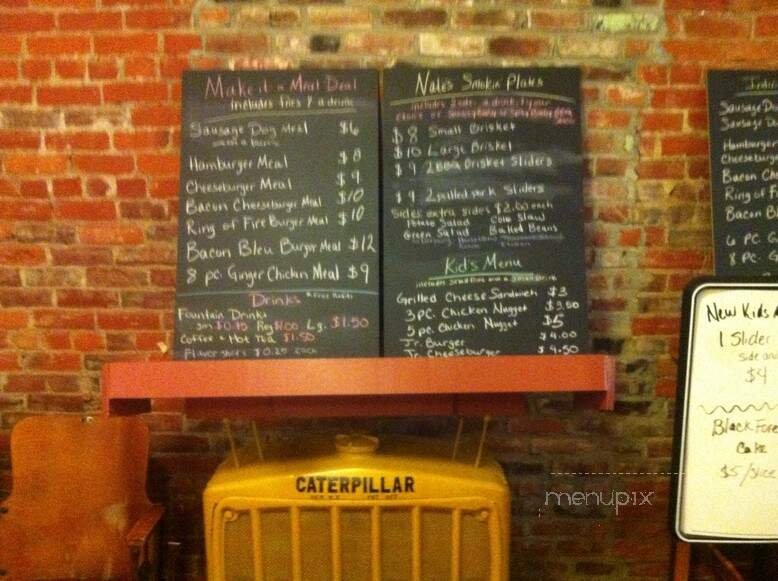 Make it a Meal Deal
includes fries & a drink
Sausage Dog Meal $6
Hamburger Meal $8
Cheeseburger Meal $9
Bacon Cheeseburger Meal $10
Ring of Fire Burger Meal $10
Bacon Bleu Burger Meal $12
8 pc. Ginger Chicken Meal $9
Drinks
Fountain Drinks
sm $0.75 Reg $1.00 Lg. $1.50
Coffee + Hot Tea $1.50
Flavor shots $0.25 each
Nate's Smokin Plates
includes side, a drink & your
choice of
$8 Small Brisket
$10 Large Brisket
$9 2 Brisket Sliders
$9 2 pulled pork Sliders
Sides extra sides $2.00 each
Potato Salad Cole Slaw
Green Salad Baked Beans
Kid's Menu
includes small fries and a small drink
Grilled Cheese Sandwich $3
3 PC. Chicken Nugget $3.50
5 pc. Chicken Nugget $5
Jr. Burger $4.00
Jr. Cheeseburger $4.50
Sausage Do
Sausage Do
Hamburger
Cheeseburg
Bacon Ch
Ring of F
Bacon B
6 PC. G
8 PC. G
New Kids M
1 Slider
side and
$4
Black Fore
Cake
$5/slice
CATERPILLAR
menupix